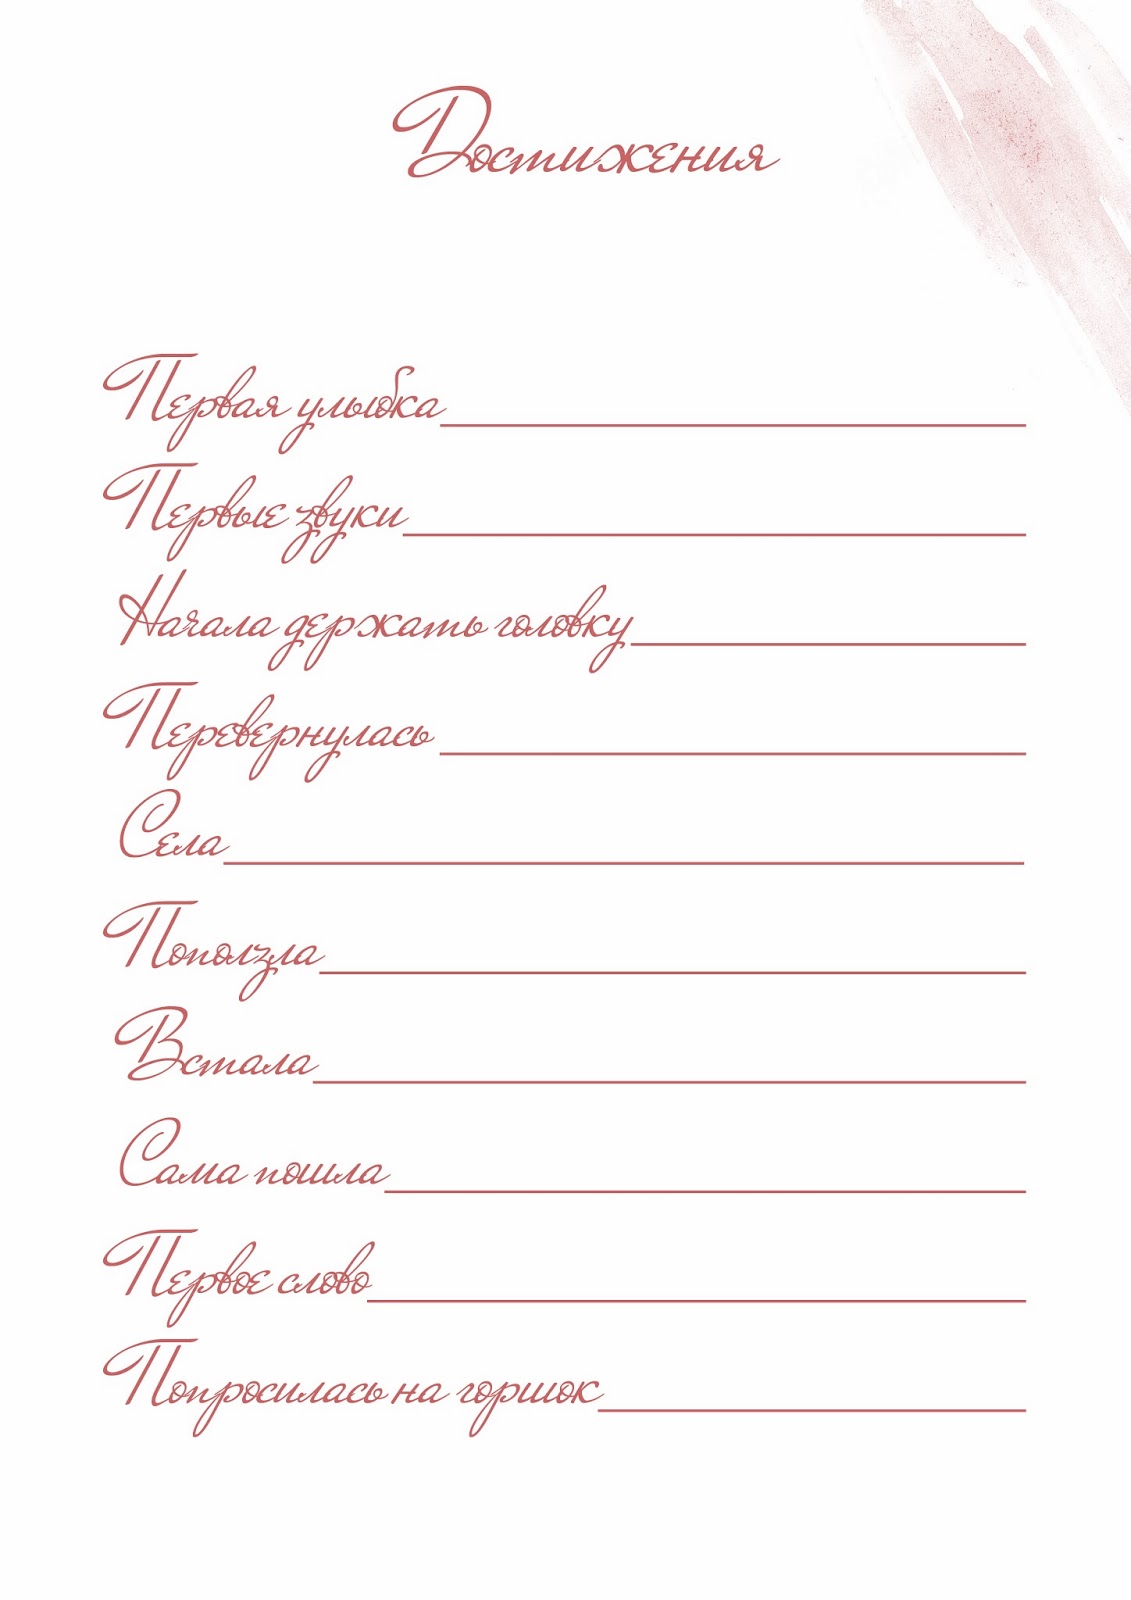 Достижения
Первая улыбка
Первые звуки
Начала держать головку
Перевернулась
Села
Поползла
Встала
Сама пошла
Первое слово
Попросилась на горшок